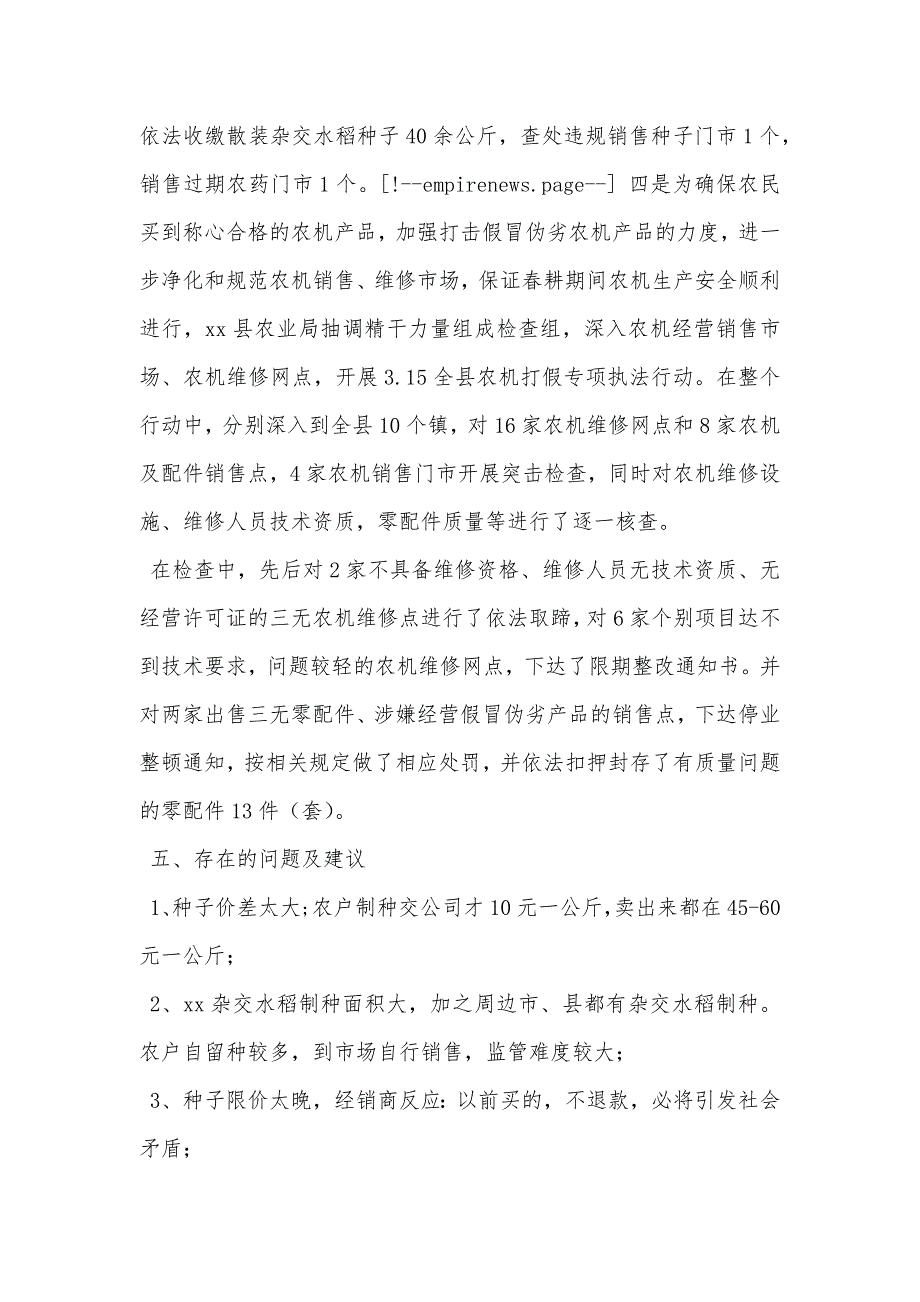 依法收缴散装杂交水稻种子 40 余公斤，查处违规销售种子门市 1 个，
销售过期农药门市 1 个。[!--empirenews.page--] 四是为确保农民
买到称心合格的农机产品，加强打击假冒伪劣农机产品的力度，进一
步净化和规范农机销售、维修市场，保证春耕期间农机生产安全顺利
进行，xx 县农业局抽调精干力量组成检查组，深入农机经营销售市
场、农机维修网点，开展 3.15 全县农机打假专项执法行动。在整个
行动中，分别深入到全县 10 个镇，对 16 家农机维修网点和 8 家农机
及配件销售点，4 家农机销售门市开展突击检查，同时对农机维修设
施、维修人员技术资质，零配件质量等进行了逐一核查。
在检查中，先后对 2 家不具备维修资格、维修人员无技术资质、无
经营许可证的三无农机维修点进行了依法取蹄，对 6 家个别项目达不
到技术要求，问题较轻的农机维修网点，下达了限期整改通知书。并
对两家出售三无零配件、涉嫌经营假冒伪劣产品的销售点，下达停业
整顿通知，按相关规定做了相应处罚，并依法扣押封存了有质量问题
的零配件 13 件（套）。
五、存在的问题及建议
1、种子价差太大;农户制种交公司才 10 元一公斤，卖出来都在 45-60
元一公斤；
2、xx 杂交水稻制种面积大，加之周边市、县都有杂交水稻制种。
农户自留种较多，到市场自行销售，监管难度较大；
3、种子限价太晚，经销商反应：以前买的，不退款，必将引发社会
矛盾；